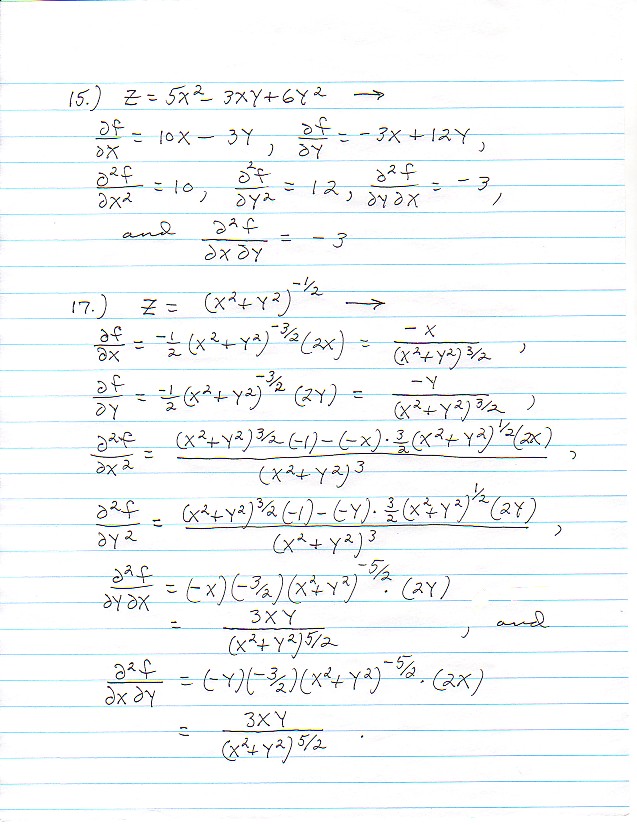 15.) Z = 5X² - 3XY + 6Y² →
∂f/∂X = 10X - 3Y, ∂f/∂Y = -3X + 12Y,
∂²f/∂X² = 10, ∂²f/∂Y² = 12, ∂²f/∂Y∂X = -3,
and ∂²f/∂X∂Y = -3
17.) Z = (X² + Y²)^(-1/2) →
∂f/∂X = -1/2 (X² + Y²)^(-3/2) (2X) = -X/(X² + Y²)^(3/2),
∂f/∂Y = -1/2 (X² + Y²)^(-3/2) (2Y) = -Y/(X² + Y²)^(3/2),
∂²f/∂X² = ((X² + Y²)^(3/2) (-1) - (-X) · 3/2 (X² + Y²)^(1/2) (2X))/(X² + Y²)³,
∂²f/∂Y² = ((X² + Y²)^(3/2) (-1) - (-Y) · 3/2 (X² + Y²)^(1/2) (2Y))/(X² + Y²)³,
∂²f/∂Y∂X = (-X)(-3/2)(X² + Y²)^(-5/2) · (2Y)
= 3XY/(X² + Y²)^(5/2), and
∂²f/∂X∂Y = (-Y)(-3/2)(X² + Y²)^(-5/2) · (2X)
= 3XY/(X² + Y²)^(5/2).